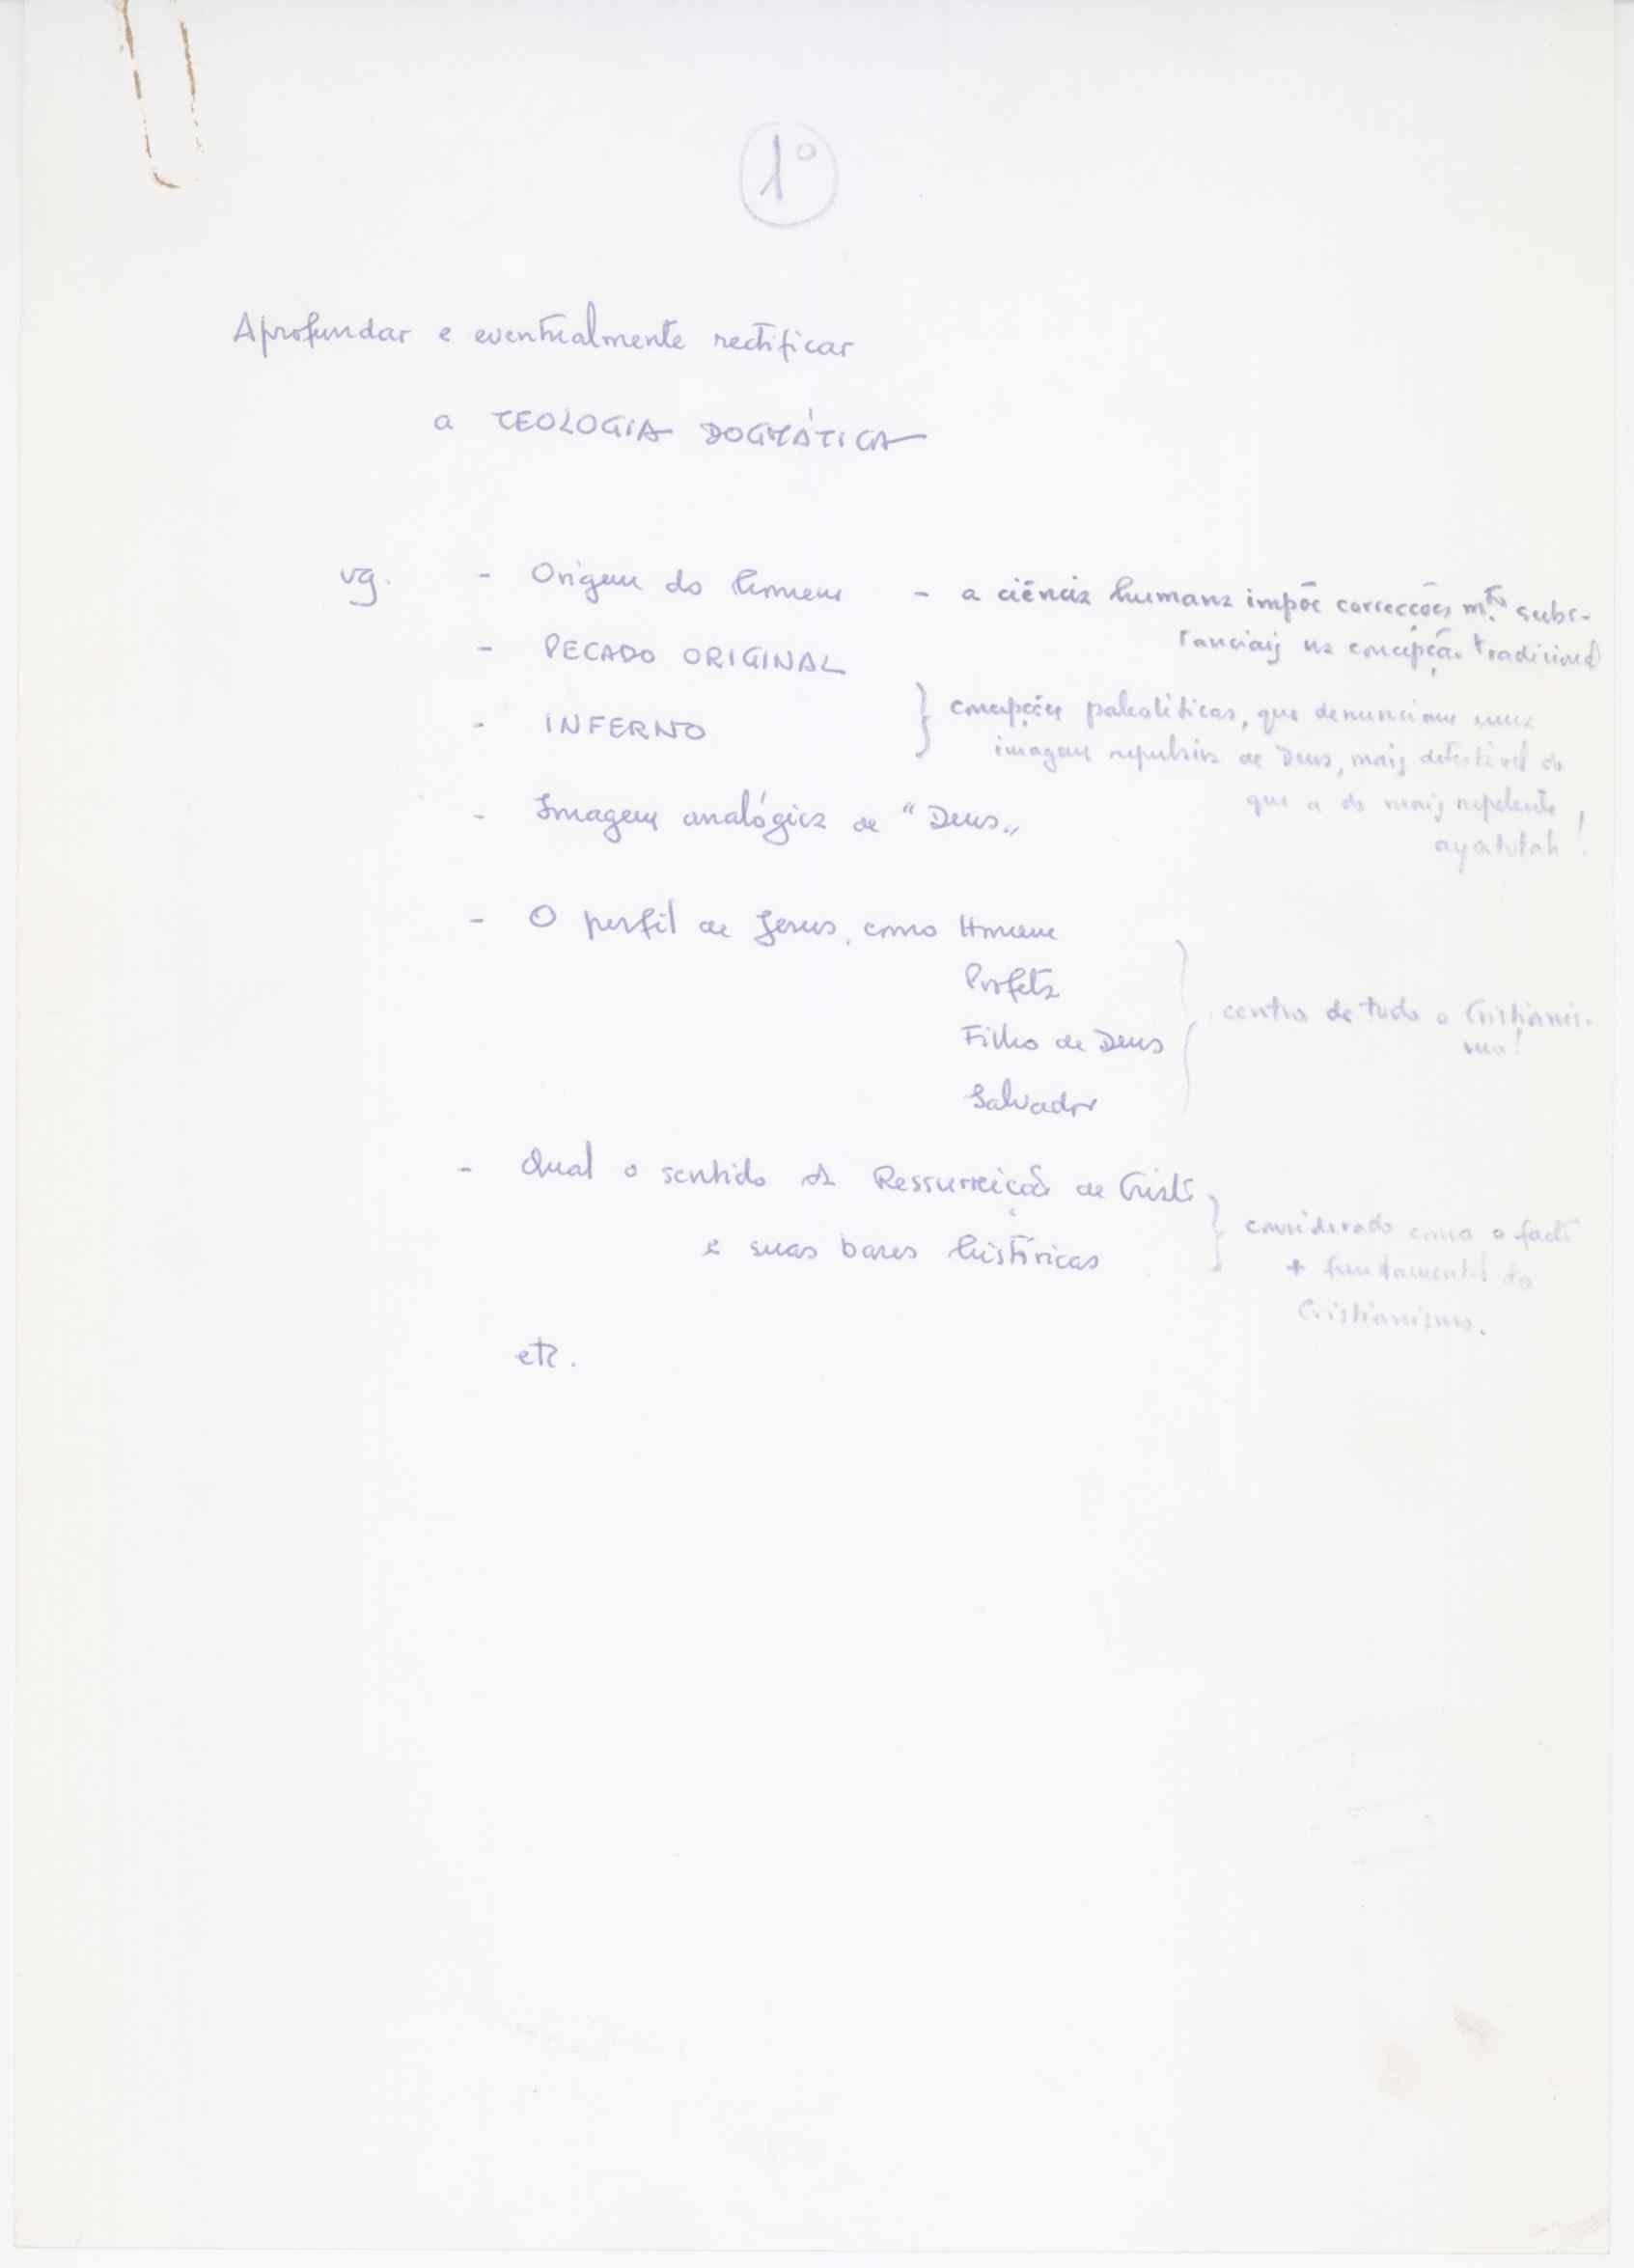 1º
Aprofundar e eventualmente rectificar
a TEOLOGIA DOGMÁTICA
vg. - Origem do homem - a ciência humana impõe correcções mto subs-
tanciais na concepção tradicional
- PECADO ORIGINAL
- INFERNO } concepções paleolíticas, que denunciam uma
imagem repulsiva de Deus, mais detestável do
que a do mais repelente
ayatolah!
- Imagem analógica de "Deus"
- O perfil de Jesus, como Homem
Profeta
Filho de Deus } centro de todo o Cristianis-
mo!
Salvador
- Qual o sentido da Ressurreição de Cristo
e suas bases históricas } considerado como o facto
+ fundamental do
Cristianismo.
etc.